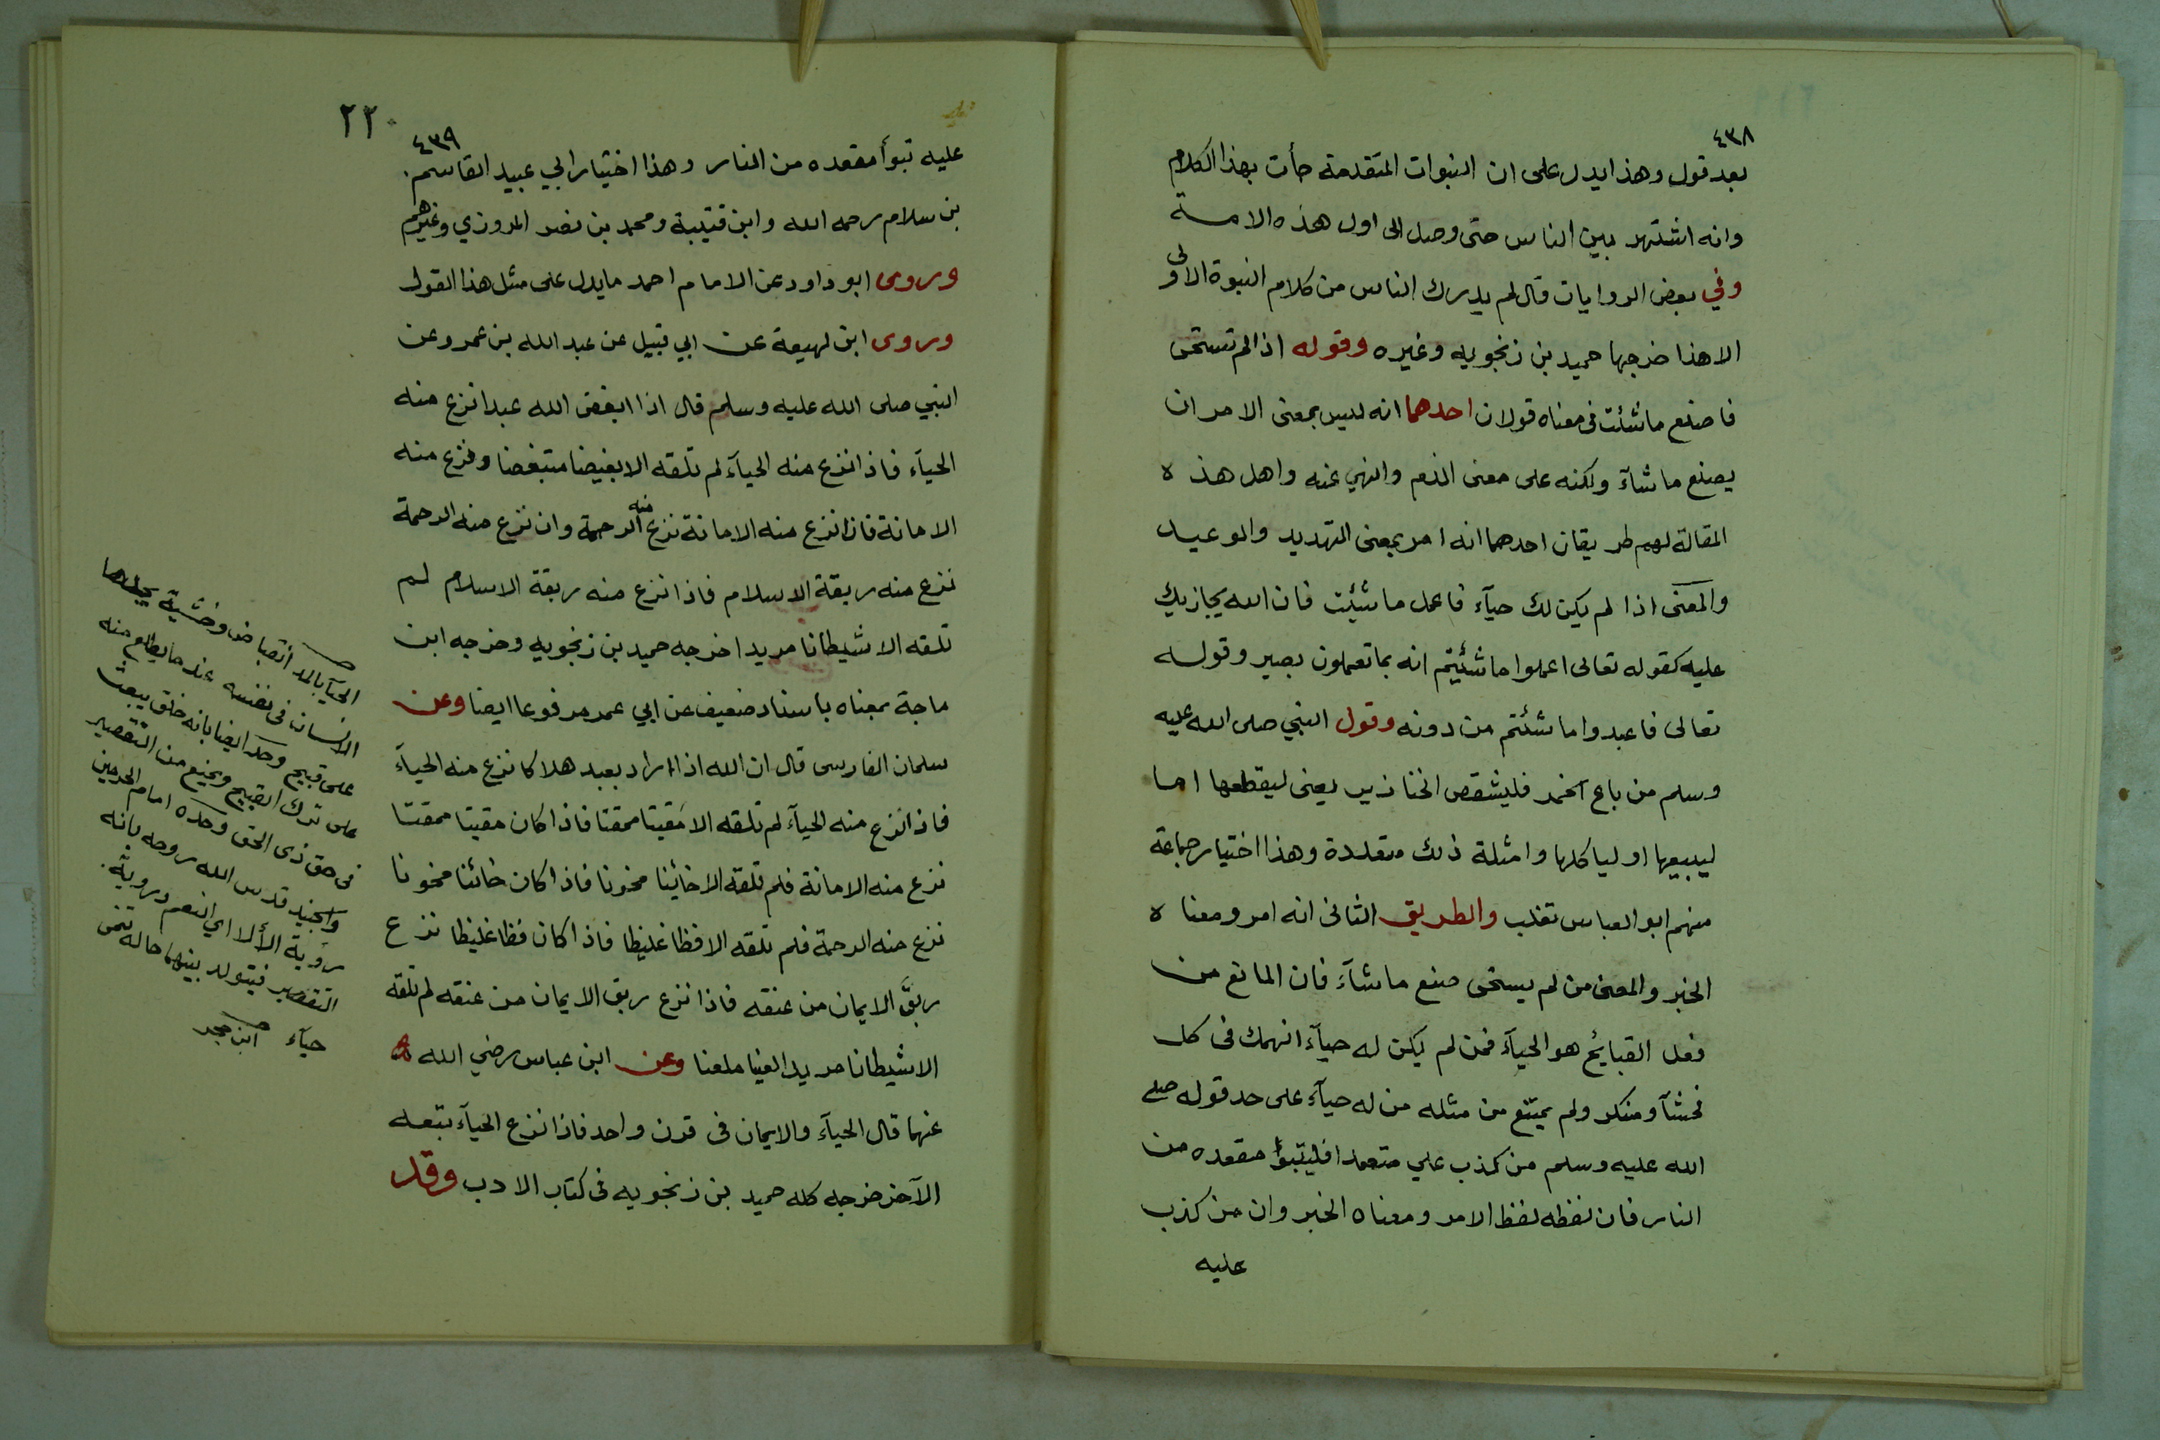 ٤٣٨
بعد قول وهذا يدل على ان النبوات المتقدمة جأت بهذا الكلام
وانه اشتهر بين الناس حتى وصل الى اول هذه الامة
وفي بعض الروايات قال لم يدرك الناس من كلام النبوة الاولى
الا هذا خرجها حميد بن زنجويه وغيره وقوله اذا لم تستحى
فاصنع ما شئت فى معناه قولان احدهما انه ليس بمعنى الامر ان
يصنع ما شآء ولكنه على معنى الذم والنهي عنه واهل هذه
المقالة لهم طريقان احدهما انه امر بمعنى التهديد والوعيد
والمعنى اذا لم يكن لك حيآء فاعمل ما شئت فان الله يجازيك
عليه كقوله تعالى اعملوا ما شئتم انه بما تعملون بصير وقوله
تعالى فاعبدوا ما شئتم من دونه وقول النبي صلى الله عليه
وسلم من باع الخمر فليشقص الخنازير يعنى ليقطعها اما
ليبيعها او لياكلها وامثلة ذلك متعددة وهذا اختيار جماعة
منهم ابو العباس تغلب والطريق الثانى انه امر ومعناه
الخبر والمعنى من لم يستحى صنع ما شآء فان المانع من
فعل القبايح هو الحيآء فمن لم يكن له حيآء انهمك فى كل
فحشآ ومنكر ولم يمتنع من مثله من له حيآء على حد قوله صلى
الله عليه وسلم من كذب علي متعمدا فليتبؤا مقعده من
النار فان لفظه لفظ الامر ومعناه الخبر وان من كذب
عليه
٢٢٠
٤٣٩
عليه تبوأ مقعده من النار وهذا اختيار ابي عبيد القاسم
بن سلام رحمه الله وابن قتيبة ومحمد بن نصر المروزي وغيرهم
وروى ابو داود عن الامام احمد ما يدل على مثل هذا القول
وروى ابن لهيعة عن ابي قبيل عن عبد الله بن عمرو عن
النبي صلى الله عليه وسلم قال اذا ابغض الله عبدا نزع منه
الحيآء فاذا نزع منه الحيآء لم تلقه الا بغيضا متبغضا ونزع منه
الامانة فاذا نزع منه الامانة نزع منه الرحمة وان نزع منه الرحمة
نزع منه ربقة الاسلام فاذا نزع منه ربقة الاسلام لم
تلقه الا شيطانا مريدا خرجه حميد بن زنجويه وخرجه ابن
ماجة بمعناه باسناد ضعيف عن ابي عمر مرفوعا ايضا وعن
سلمان الفارسى قال ان الله اذا اراد بعبد هلاكا نزع منه الحيآء
فاذا نزع منه الحيآء لم تلقه الا مقيتا ممقتا فاذا كان مقيتا ممقتا
نزع منه الامانة فلم تلقه الا خائنا مخونا فاذا كان خائنا مخونا
نزع منه الرحمة فلم تلقه الا فظا غليظا فاذا كان فظا غليظا نزع
ربق الايمان من عنقه فاذا نزع ربق الايمان من عنقه لم تلقه
الا شيطانا مريدا لعينا ملعنا وعن ابن عباس رضي الله
عنهما قال الحيآء والايمان فى قرن واحد فاذا نزع الحيآء تبعه
الآخر خرجه كله حميد بن زنجويه فى كتاب الادب وقد
الحيآ بالمد أنقباض وخشية يجدها
الانسان فى نفسه عند ما يطلع منه
على قبيح وحد ايضا بانه خلق يبعث
على ترك القبيح ويمنع من التقصير
فى حق ذى الحق وحده امام الحرمين
والجنيد قدس الله روحه بانه
رؤية الألا اي النعم ورؤية
التقصير فيتولد بينهما حالة تسمى
حيآء ابن حجر